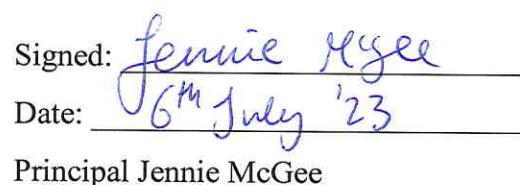 Signed: Jennie McGee
Date: 6th July '23
Principal Jennie McGee